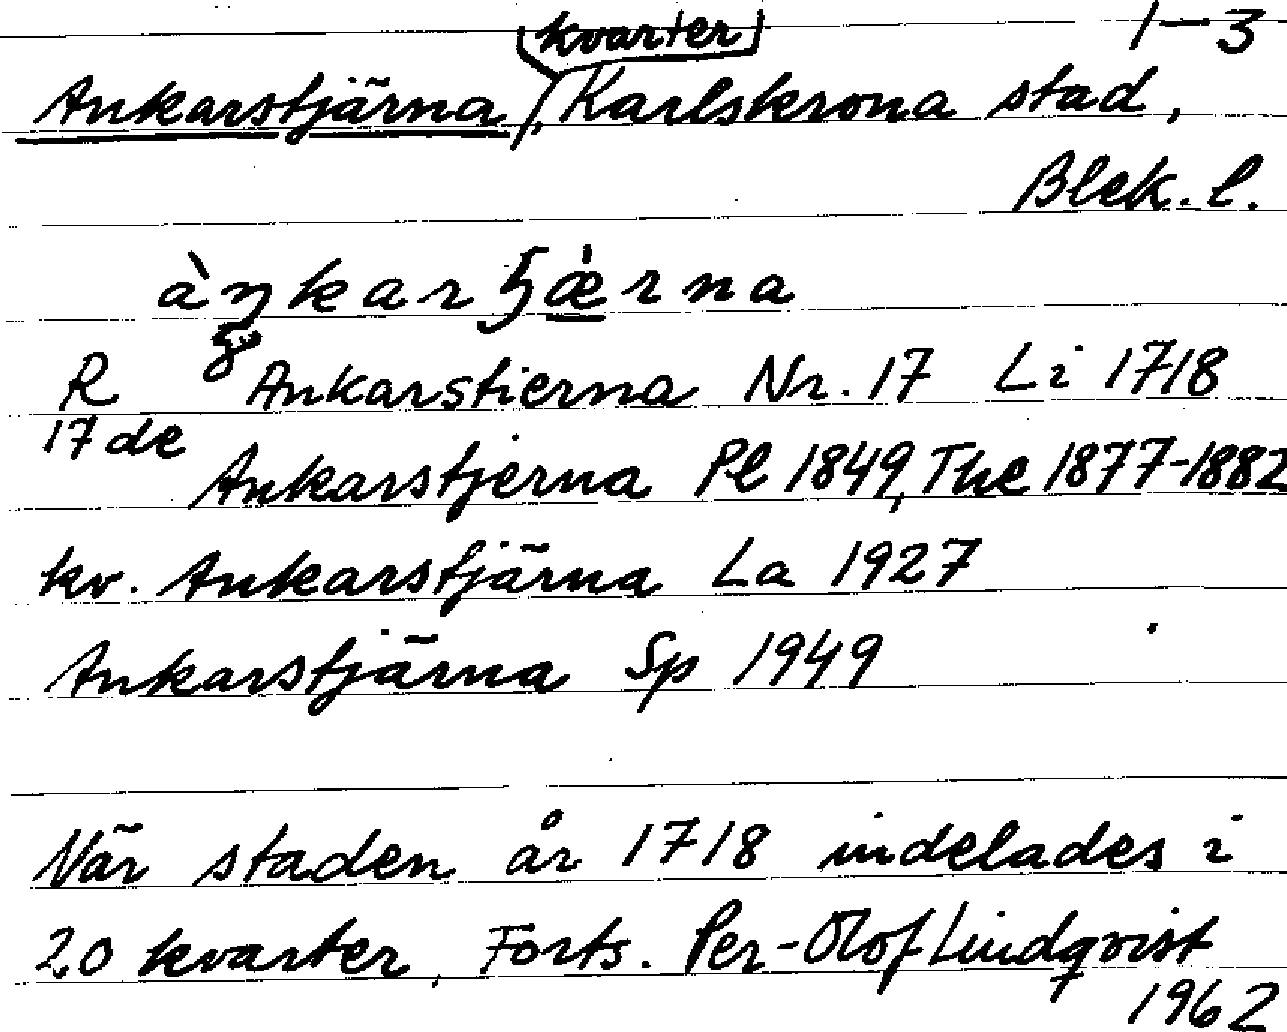 kvarter 1-3
Ankarstjärna, Karlskrona stad,
Blek. l.
R Ankarstierna Nr. 17 Li 1718
17de
Ankarstjerna Pl 1849, The 1877-1882
kv. Ankarstjärna La 1927
Ankarstjärna Sp 1949
När staden år 1718 indelades i
20 kvarter, Forts. Per-Olof Lindqvist
1962